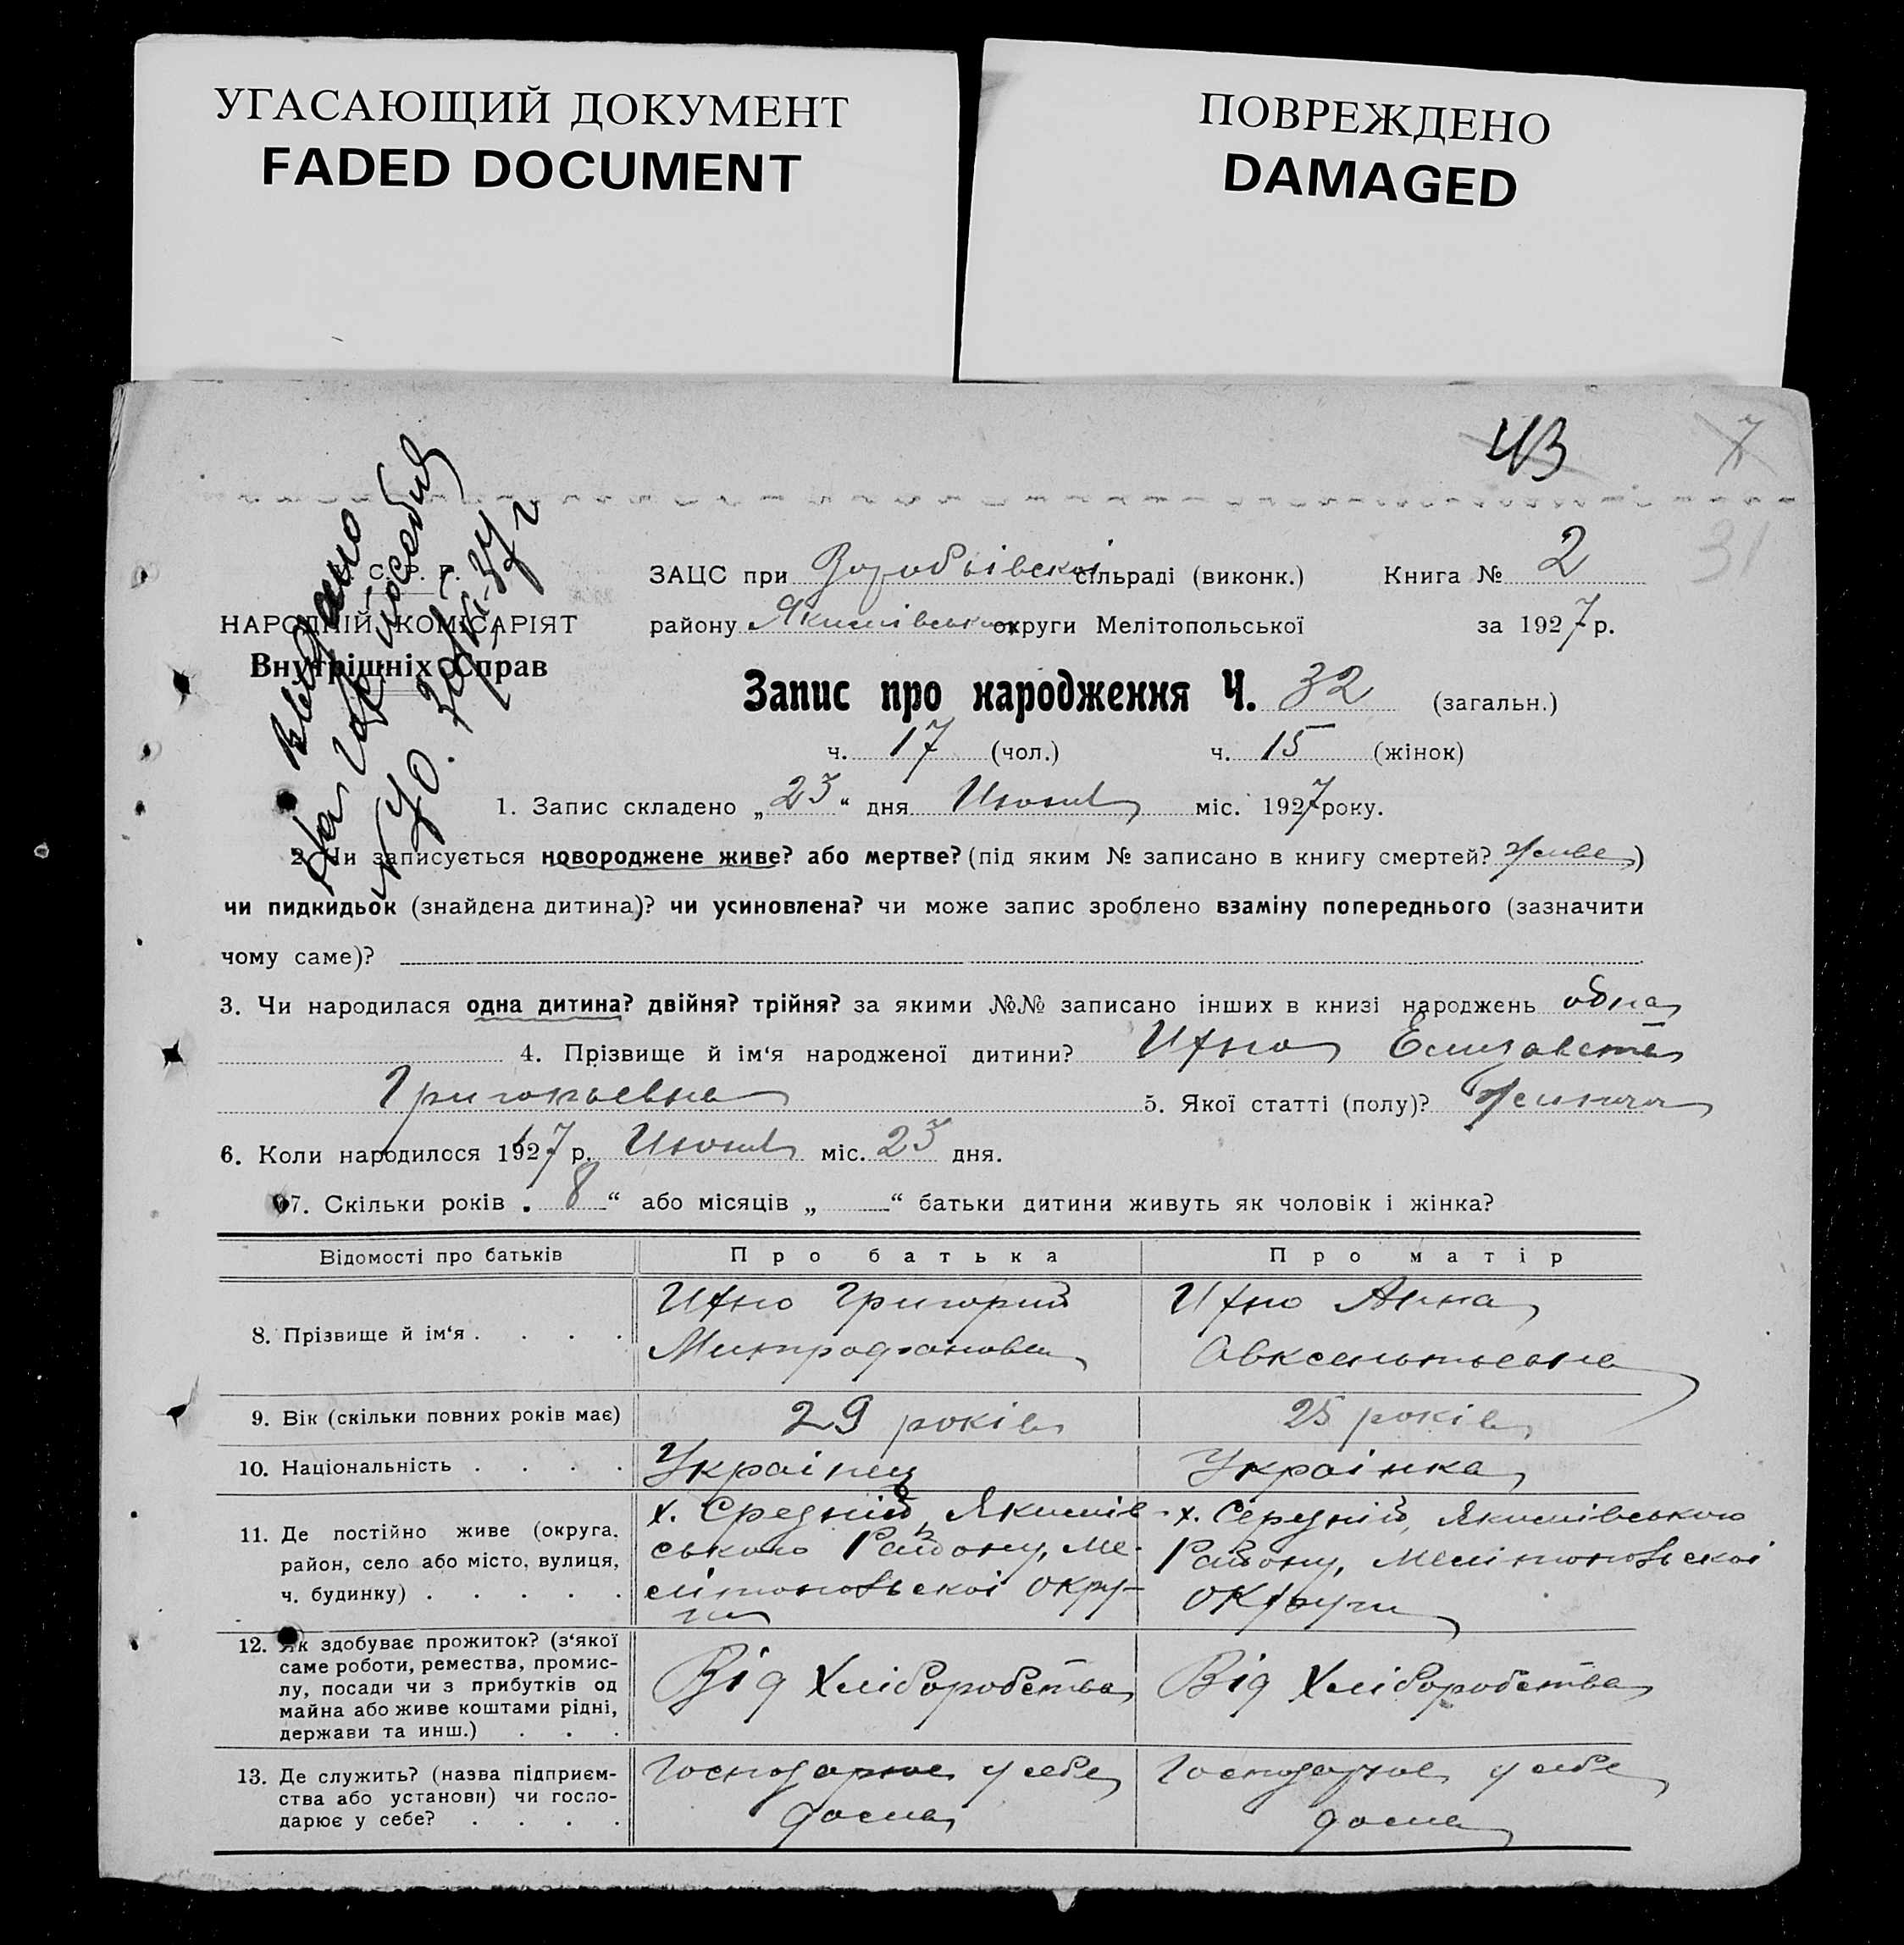 УГАСАЮЩИЙ ДОКУМЕНТ
FADED DOCUMENT
ПОВРЕЖДЕНО
DAMAGED
43
7
31
С. Р. Р.
НАРОДНІЙ КОМІСАРІЯТ
Внутрішніх Справ
ЗАЦС при Воробьівскоі сільраді (виконк.) Книга № 2
району Якимівського округи Мелітопольської за 1927 р.
Запис про народження Ч. 32 (загальн.)
ч. 17 (чол.) ч. 15 (жінок)
1. Запис складено „23“ дня Июня міс. 1927 року.
2. Чи записується новороджене живе? або мертве? (під яким № записано в книгу смертей? живе)
чи пидкидьок (знайдена дитина)? чи усиновлена? чи може запис зроблено взаміну попереднього (зазначити
чому саме)?
3. Чи народилася одна дитина? двійня? трійня? за якими №№ записано інших в книзі народжень одна
4. Прізвище й ім‘я народженої дитини? Ихно Елизавета
Григорьевна 5. Якої статті (полу)? Жиноча
6. Коли народилося 1927 р. Июня міс. 23 дня.
7. Скільки років „8“ або місяців „ “ батьки дитини живуть як чоловік і жінка?
Відомості про батьків Про батька Про матір
8. Прізвище й ім‘я . . . . Ихно Григорий Митрофанович Ихно Анна Авксентьевна
9. Вік (скільки повних років має) 29 років 25 років
10. Національність . . . . Украінец Украінка
11. Де постійно живе (округа, район, село або місто, вулиця, ч. будинку) . . . . . х. Средній, Якимівського Району, Мелітопольскоі округи х. Середній, Якимівського Району, Мелітопольскоі округи
12. Як здобуває прожиток? (з‘якої саме роботи, ремества, промислу, посади чи з прибутків од майна або живе коштами рідні, держави та инш.) . . . Від Хліборобства Від Хліборобства
13. Де служить? (назва підприємства або установи) чи господарює у себе? . . . . Господарює у себе дома Господарює у себе дома